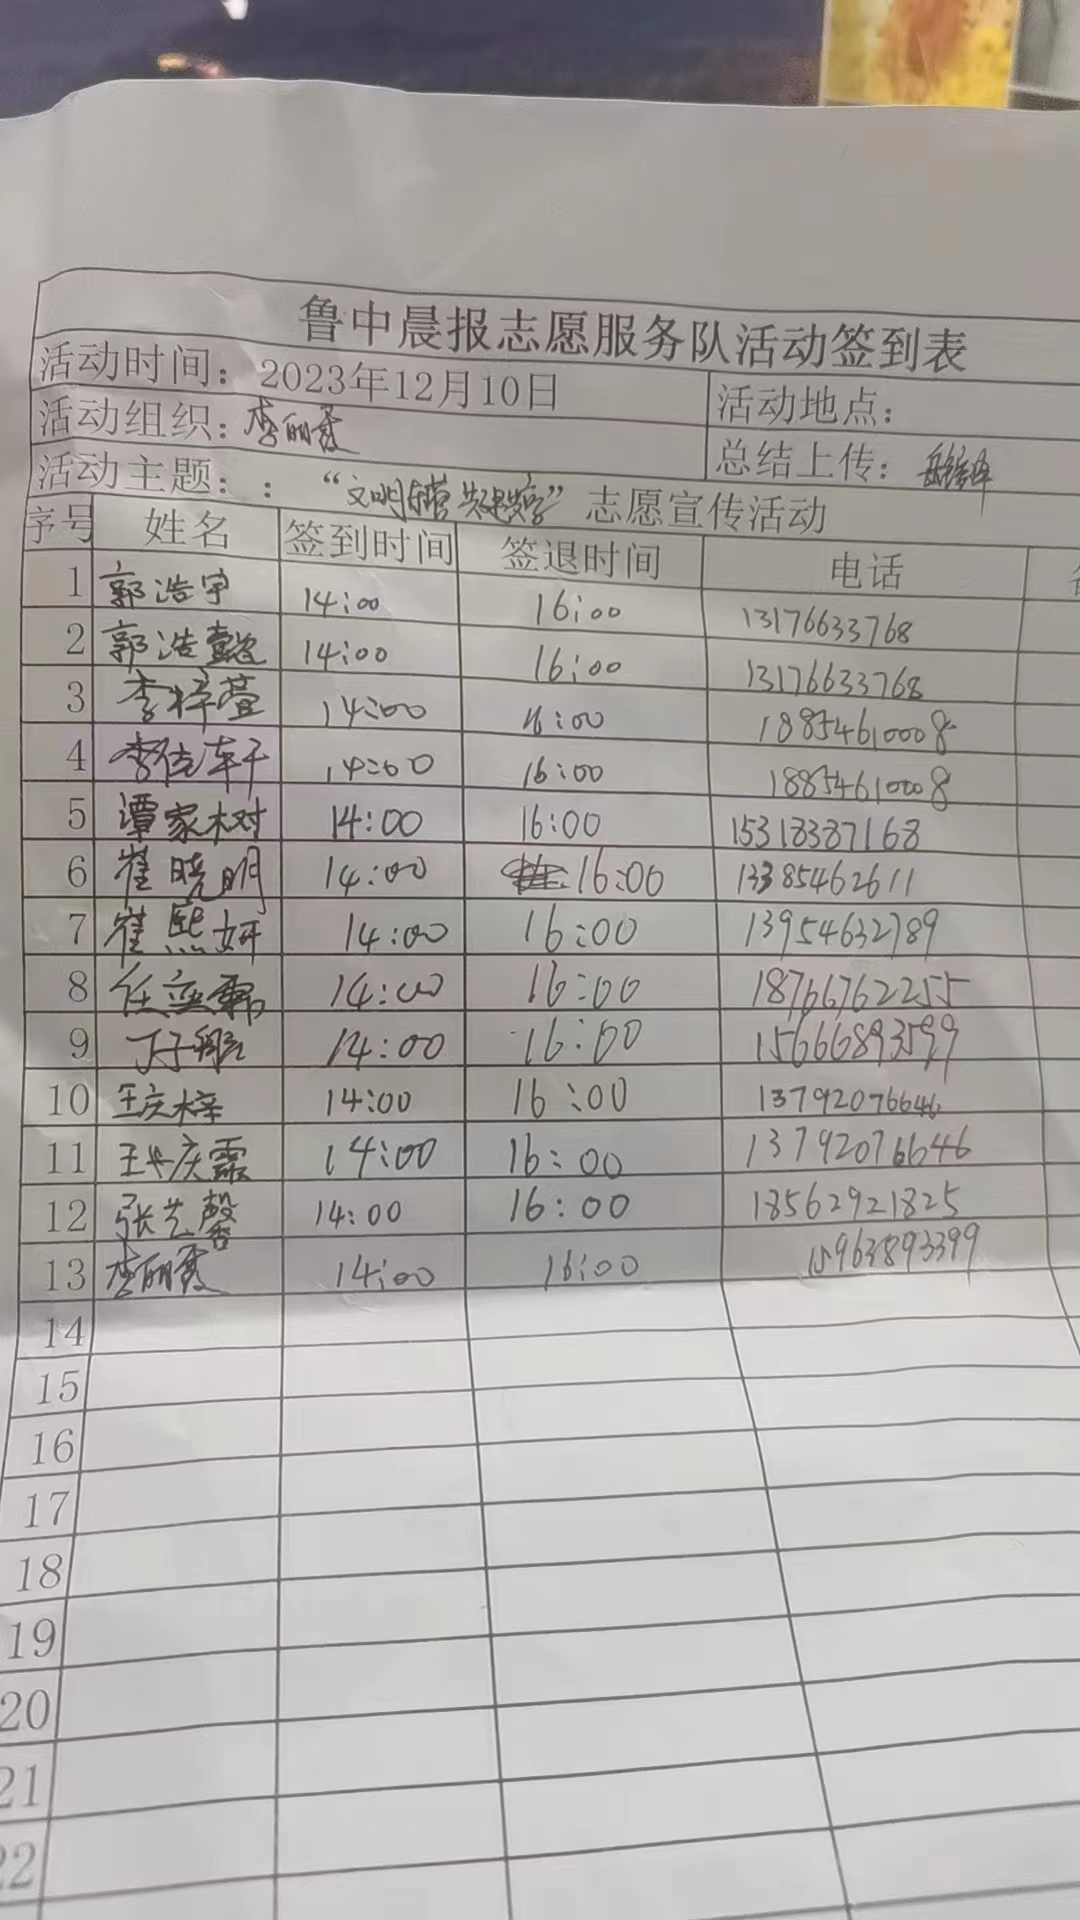 鲁中晨报志愿服务队活动签到表
活动时间：2023年12月10日 活动地点：
活动组织：李丽霞 总结上传：
活动主题：：“文明东营 共建共享”志愿宣传活动
序号 姓名 签到时间 签退时间 电话
1 郭浩宇 14:00 16:00 13176633768
2 郭浩懿 14:00 16:00 13176633768
3 李梓萱 14:00 16:00 18854610008
4 李佳轩 14:00 16:00 18854610008
5 谭家树 14:00 16:00 15318387168
6 崔晓明 14:00 16:00 13385462611
7 崔熙妍 14:00 16:00 13954632789
8 任 14:00 16:00 18766762255
9 丁子 14:00 16:00 15666893599
10 王庆梓 14:00 16:00 13792076646
11 王 庆霖 14:00 16:00 13792076646
12 张艺馨 14:00 16:00 18562921825
13 李丽霞 14:00 16:00 15963893399
14
15
16
17
18
19
20
21
22